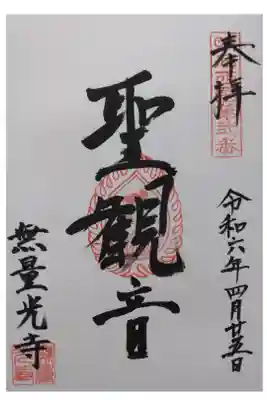 奉拝
聖観音
令和六年四月廿五日
無量光寺